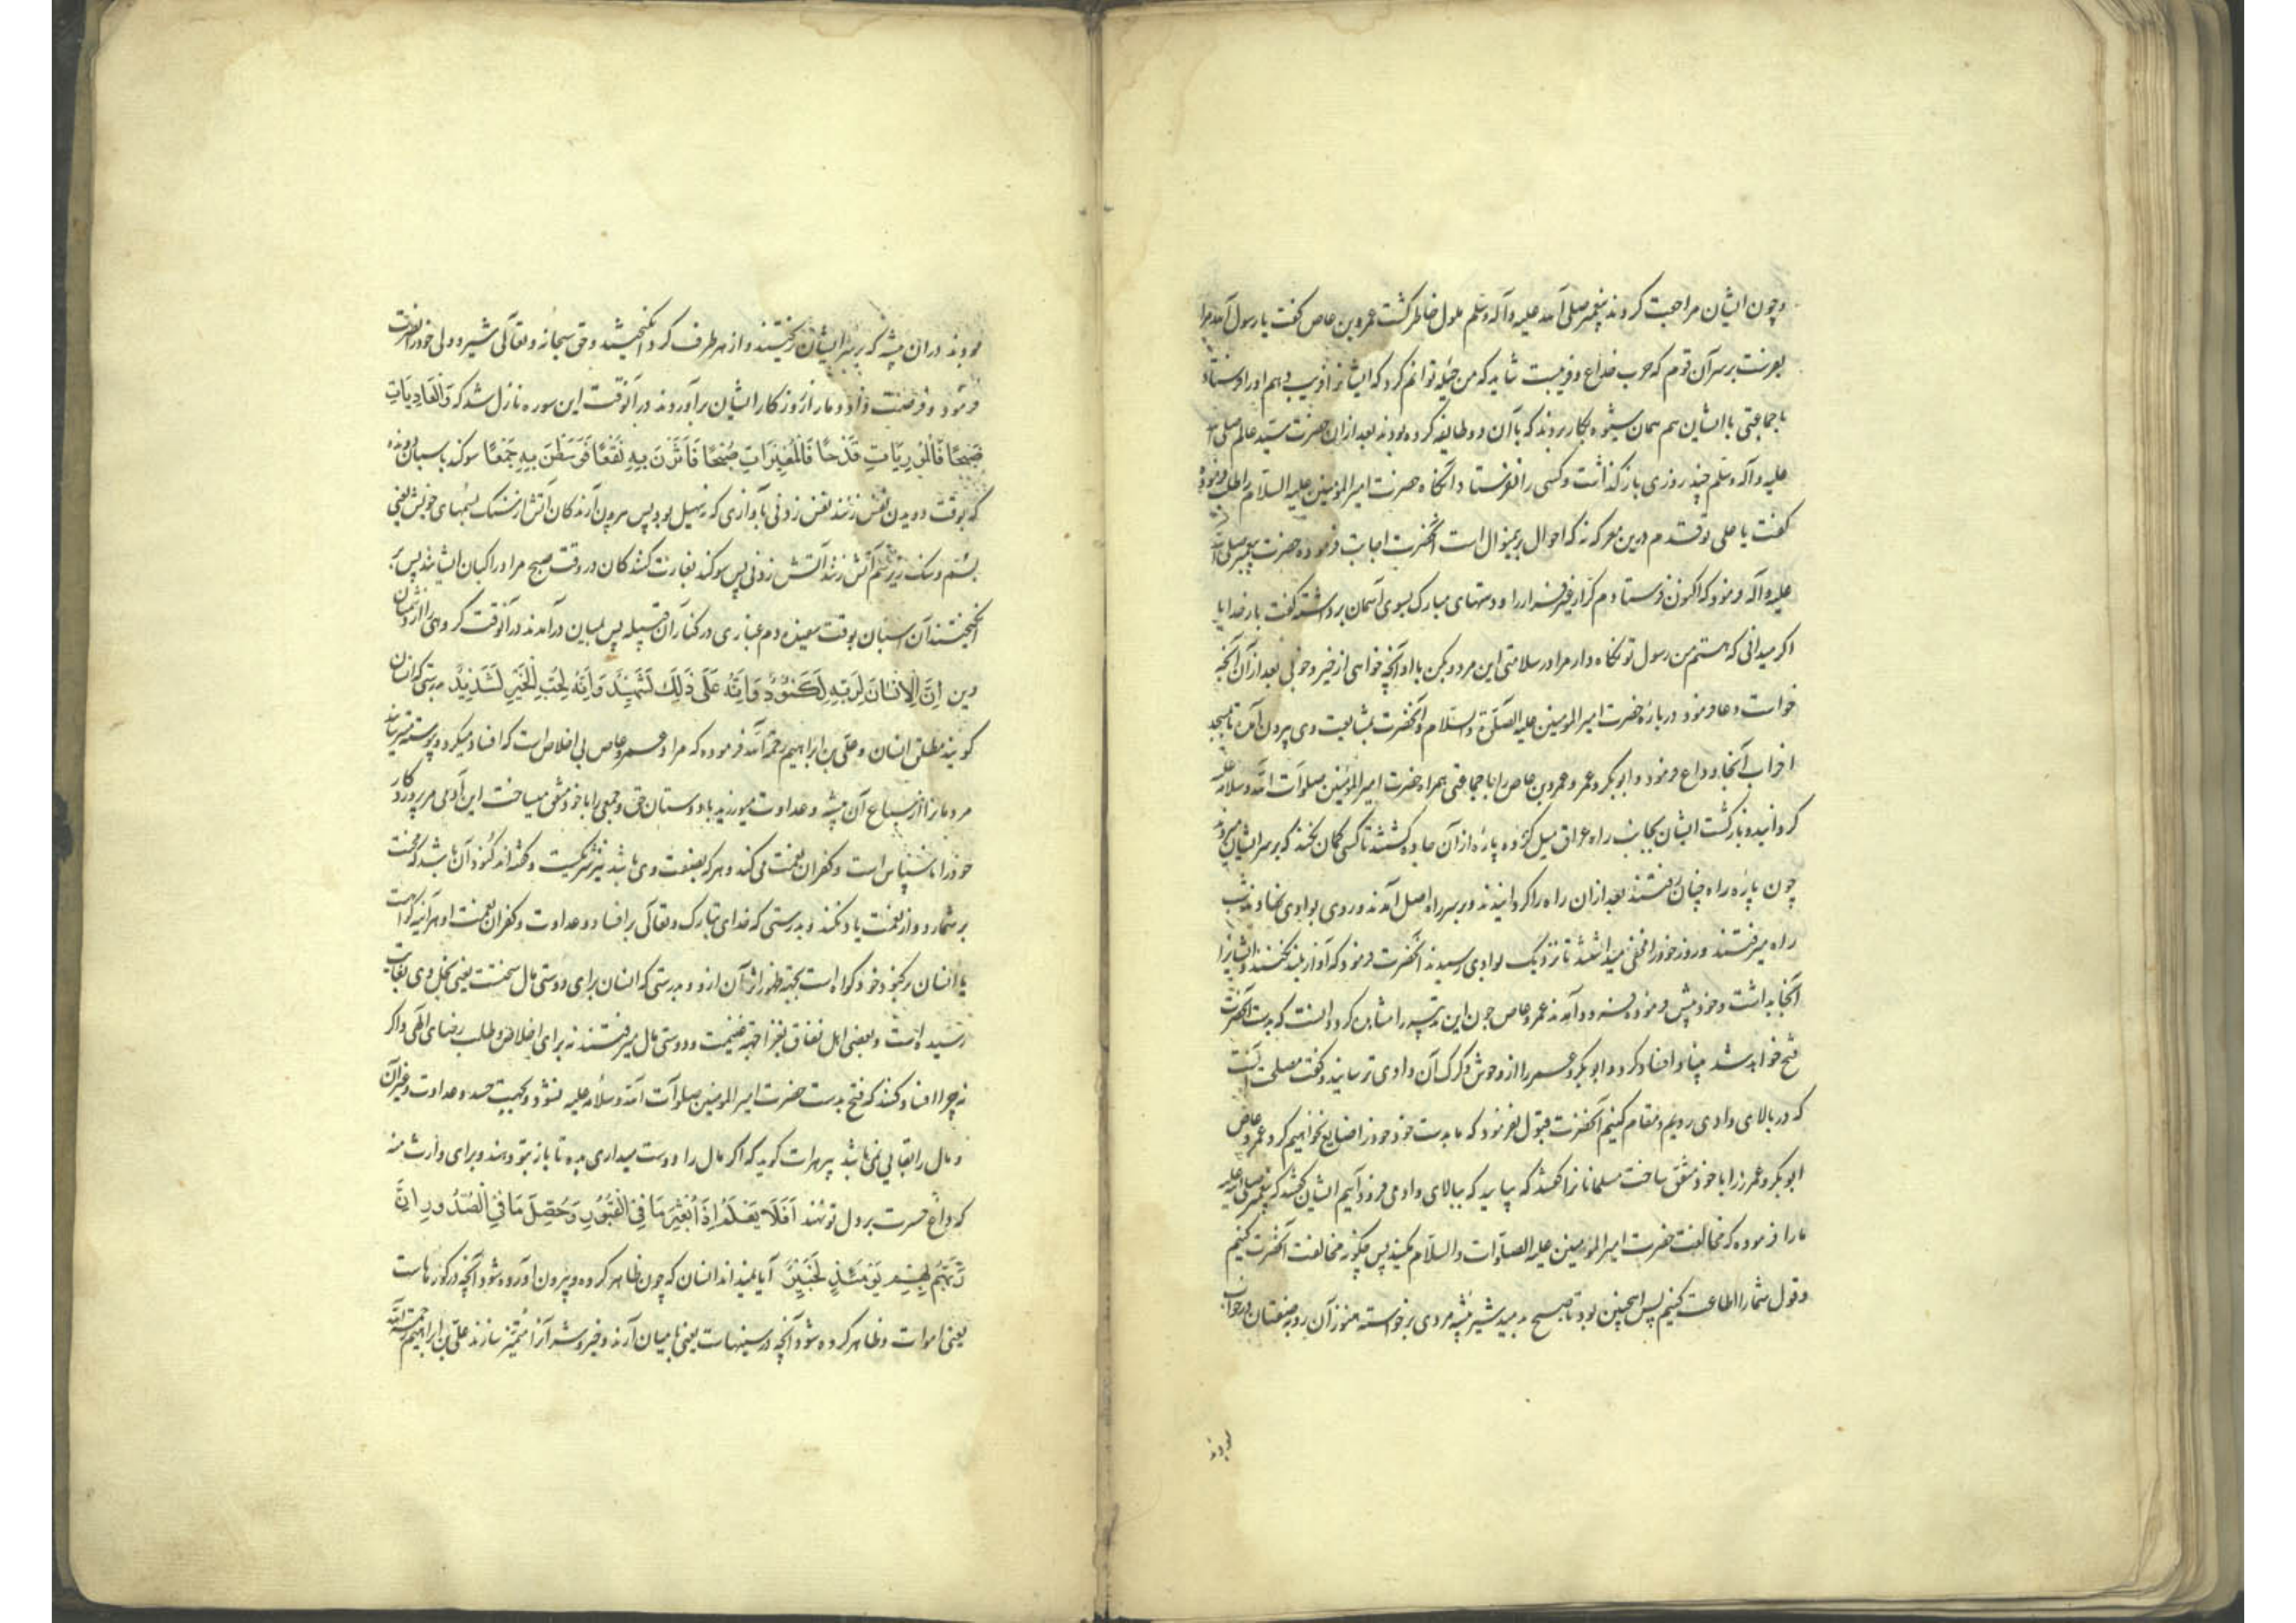 و چون ایشان مراجعت کردند پیغمبر صلی الله علیه و آله و سلم ملول خاطر گشت عمرو بن عاص گفت یا رسول الله مرا
بفرست بر سر آن قوم که حرب خداع و فریبست شاید که من حیله توانم کرد که ایشانرا فریب دهم او را فرستاد
با جماعتی با ایشان هم همان شیوه بکار بردند که با آن دو طایفه کرده بودند بعد از ان حضرت سید عالم صلی الله
علیه و آله و سلم چند روزی باز گذاشت و کسی را نفرستاد آنگاه حضرت امیر المومنین علیه السلام را طلب فرمود و
گفت یا علی درین معرکه که احوال برینمنوال است آنحضرت اجابت فرموده حضرت پیغمبر صلی الله
علیه و آله فرمود که اکنون فرستادم کرار غیر فرار را و دستهای مبارک بسوی آسمان برداشته گفت بار خدایا
اگر میدانی که هستم من رسول تو نگاه دار مرا در سلامتی این مرد و بکن با او آنچه خواهی از خیر و خوبی بعد از آن آنچه
خواست دعا فرمود درباره حضرت امیر المومنین علیه الصلوة و السلام و آنحضرت بمشایعت وی بیرون آمد تا بمسجد
احزاب آنجا وداع فرمود و ابوبکر و عمر و عمرو بن عاص را با جماعتی همراه حضرت امیر المؤمنین صلوات الله و سلامه علیه
گردانید و بازگشت ایشان بجانب راه عراق میل کرده پاره از آن جاده گشتند تا کسی گمان نکند که بر سر ایشان میروند
چون پاره راه چنان رفتند بعد از ان راه را گردانیدند و بر سر راه اصل آمدند و روی بوادی نهادند شب
راه میرفتند و روز خود را مخفی میداشتند تا نزدیک بوادی رسیدند آنحضرت فرمود که آواز بلند نکنند و ایشانرا
آنجا بداشت و خود پیش فرموده آمدند عمرو عاص چون این تدبیر را مشاهده کرد دانست که بدست آنحضرت
فتح خواهد شد بنیاد افساد کرد و ابوبکر و عمر را از وحوش و گرگ آن وادی ترسانید و گفت مصلحت آنست
که در بالای وادی رویم و مقام کنیم آنحضرت قبول نفرمود که ما بدست خود خود را ضایع نخواهیم کرد عمرو عاص
ابوبکر و عمر را با خود متفق ساخت مسلمانانرا گفتند که بیایید که ببالای وادی فرود آییم ایشان گفتند که پیغمبر صلی الله علیه
ما را فرموده که مخالفت حضرت امیر المؤمنین علیه الصلوات و السلام مکنید پس چگونه مخالفت آنحضرت کنیم
و قول شما را اطاعت کنیم پس اینچنین بود تا صبح بدمید شیر بیشه مردی برخواسته هنوز آن روبه صفتان در خواب
بودند
بودند دران بیشه که بر سر ایشان ریختند و از هر طرف گرد انگیختند و حق سبحانه و تعالی شیر و ولی خود را نصرت
فرمود و فرصت داد و دمار از روزگار ایشان برآوردند در آنوقت این سوره نازل شد که وَالْعَادِيَاتِ
ضَبْحًا فَالْمُورِيَاتِ قَدْحًا فَالْمُغِيرَاتِ صُبْحًا فَأَثَرْنَ بِهِ نَقْعًا فَوَسَطْنَ بِهِ جَمْعًا سوگند باسبان دونده
که بوقت دویدن نفس زنند نفس زدنی بآوازی که صهیل بود پس بیرون آرندگان آتش از سنگ بسمهای خویش یعنی
بسم و سنگ زیر سم آتش زنند آتش زدنی پس سوگند بغارت کنندگان در وقت صبح مراد راکبان ایشانند پس بر
انگیختند آن اسبان بوقت سپیده دم غباری در کنار آن قبیله پس بمیان درآمدند در آنوقت گروهی را از دشمنان
دین اِنَّ الْاِنْسَانَ لِرَبِّهِ لَكَنُودٌ وَاِنَّهُ عَلَى ذَلِكَ لَشَهِيدٌ وَاِنَّهُ لِحُبِّ الْخَيْرِ لَشَدِيدٌ بدرستی که انسان
گویند مطلق انسان و علی بن ابراهیم رحمه الله فرموده که مراد عمرو عاص بی اخلاص است که افساد میکرد و پیوسته میترسانید
مردمانرا از سباع آن بیشه و عداوت میورزید با دوستان حق و جمعی را با خود متفق میساخت این آدمی مر پروردگار
خود را ناسپاس است و کفران نعمت می کند و هر که بصفت وی باشد نیز شریکست و گفته اند کنود آن باشد که محنت
بر شمارد و از نعمت یاد نکند و بدرستی که خدای تبارک و تعالی بر افساد و عداوت و کفران نعمت او هرآینه گواهست
یا انسان بر کنود خود گواه است بجهة ظهور اثر آن ازو و بدرستی که انسان برای دوستی مال سختست یعنی بخل وی بغایت
رسیده است و بعضی اهل نفاق بغزا جهة غنیمت و دوستی مال میرفتند نه برای اخلاص و طلب رضای الهی و اگر
نه چرا افساد کنند که فتح بدست حضرت امیر المومنین صلوات الله و سلامه علیه نشود و بجهت حسد و عداوت و غیر آن
و مال را بقایی نمی باشد پیر هرات گوید که اگر مال را دوست میداری بده تا باز بتو دهند و برای وارث منه
که داغ حسرت بر دل تو نهند اَفَلَا يَعْلَمُ اِذَا بُعْثِرَ مَا فِي الْقُبُورِ وَحُصِّلَ مَا فِي الصُّدُورِ اِنَّ
رَبَّهُمْ بِهِمْ يَوْمَئِذٍ لَخَبِيرٌ آیا نمیداند انسان که چون ظاهر کرده و بیرون آورده شود آنچه در گورهاست
یعنی اموات و ظاهر کرده شود آنچه در سینهاست یعنی بمیان آرند و خیر و شر آنرا متمیز سازند علی بن ابراهیم رحمة الله